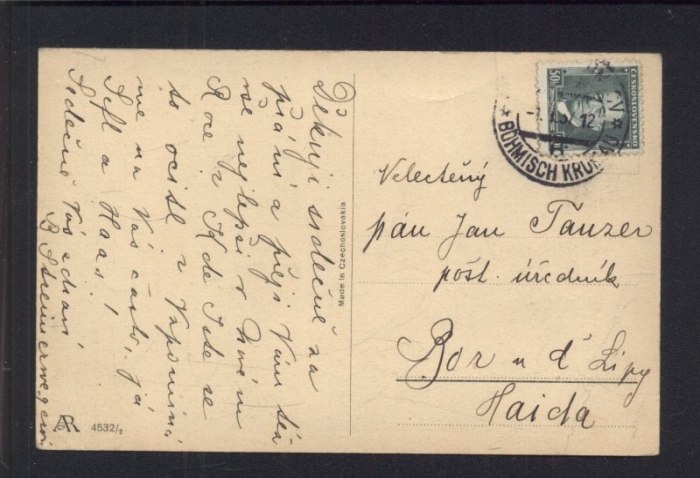 Děkuji srdečně za
přání a přeji Vám též
vše nejlepší v Novém
Roce. Kde jste se
to ocitl? Vzpomíná
me na Vás často, já
a Haas!
Srdečně Vás zdraví
B.
Made in Czechoslovakia
4532/2
ČESKOSLOVENSKO
50
BÖHMISCH KRUMAU
12
Velectěný
pán Jan Tanzer
pošt. úředník
Bor u Č. Lípy
Haida